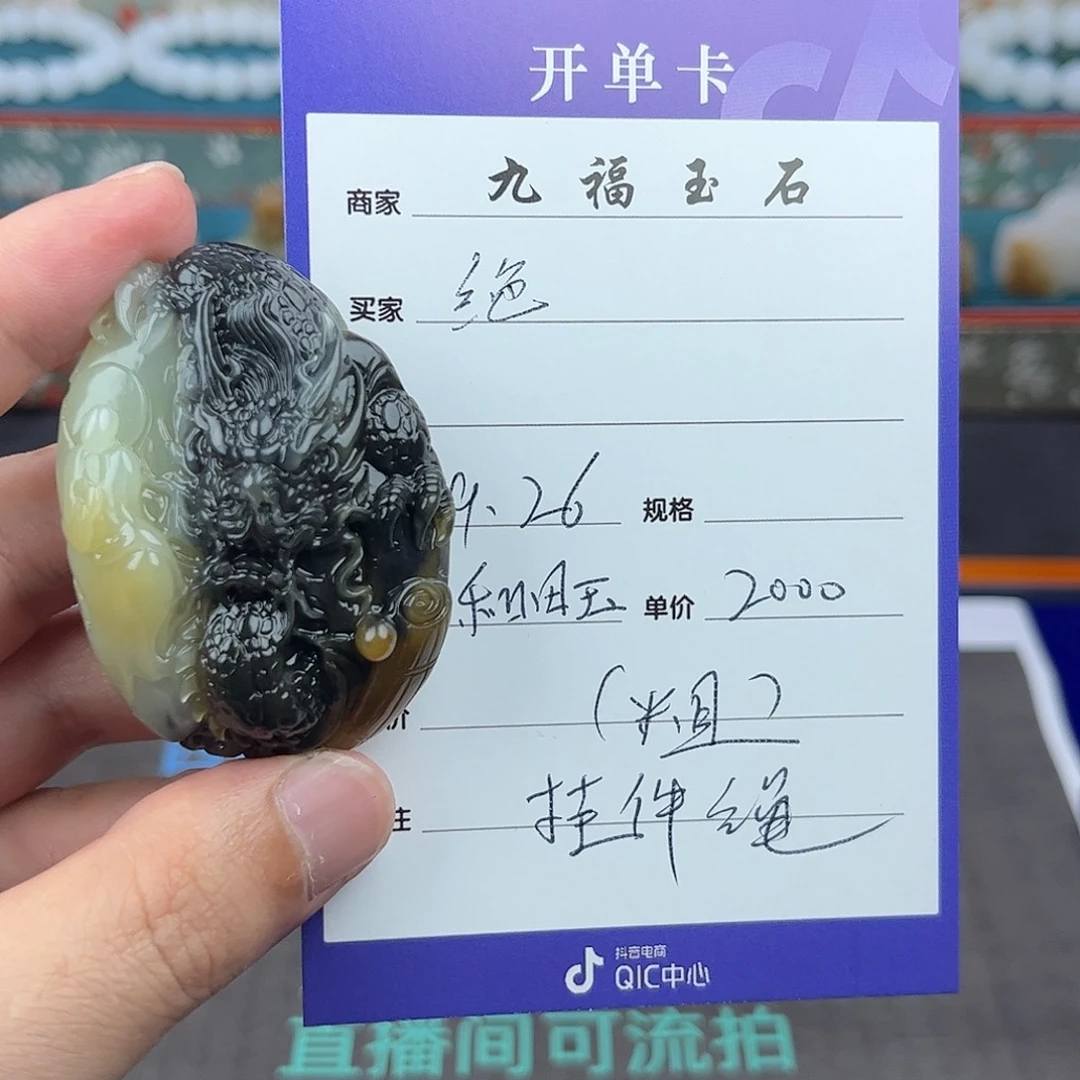 开单卡
商家 九福玉石
买家 绝
9.26 规格
和田玉 单价 2000
价 (粗)
注 挂件绳
抖音电商
QIC中心
直播间可流拍